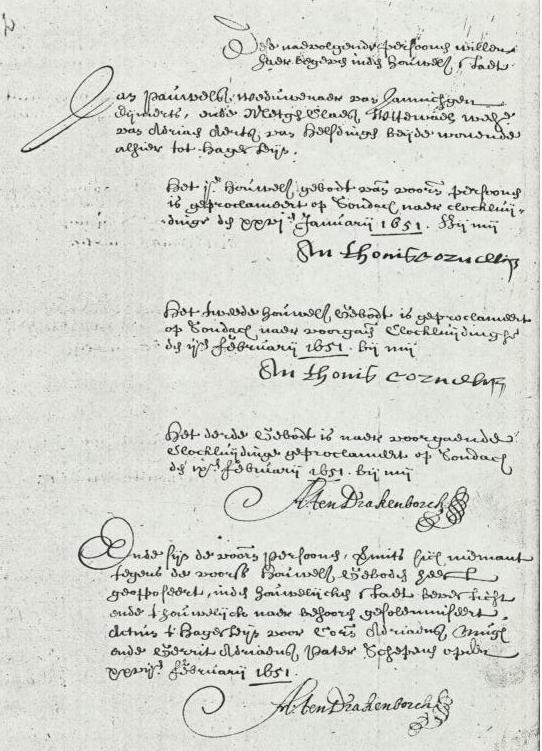 Dese naevolgende persoonen willen
haer begeven inden houwelyck staet
Jan Pauwelss weduwenaer van Jannichgen
ende Metgh Claes Wttewaels wede
van Adriaen Aertss van helsdingh beyde wonende
alhier tot Hagesteijn.
Het jen houwelx gebodt van voorn persoonen
is geproclameert op Sondach naer clockluij-
dinge den xxvjen Januarij 1651. Bij mij
Anthonis Cornelisz
Het tweede houwelx Gebodt is geproclameert
op Sondach naer voorgaende Clockluijdinghe
den ijen februarij 1651. bij mij
Anthonis Cornelisz
Het derde Gebodt is naer voorgaende
Clockluijdinge geproclameert op Sondach
den ixen februarij 1651. bij mij
A. ten Drakenborch
Ende sijn de voorn persoonen, mits sich niemant
tegens de voorss houwelx Geboden heeft
geopposeert, inden houwelijcken staet bevesticht
ende t houwelijck naer behooren gesolemniseert
Actum t Hagesteijn voor Cors Adriaens
ende Gerrit Adriaens Pater Schepens opden
februarij 1651.
A. ten Drakenborch